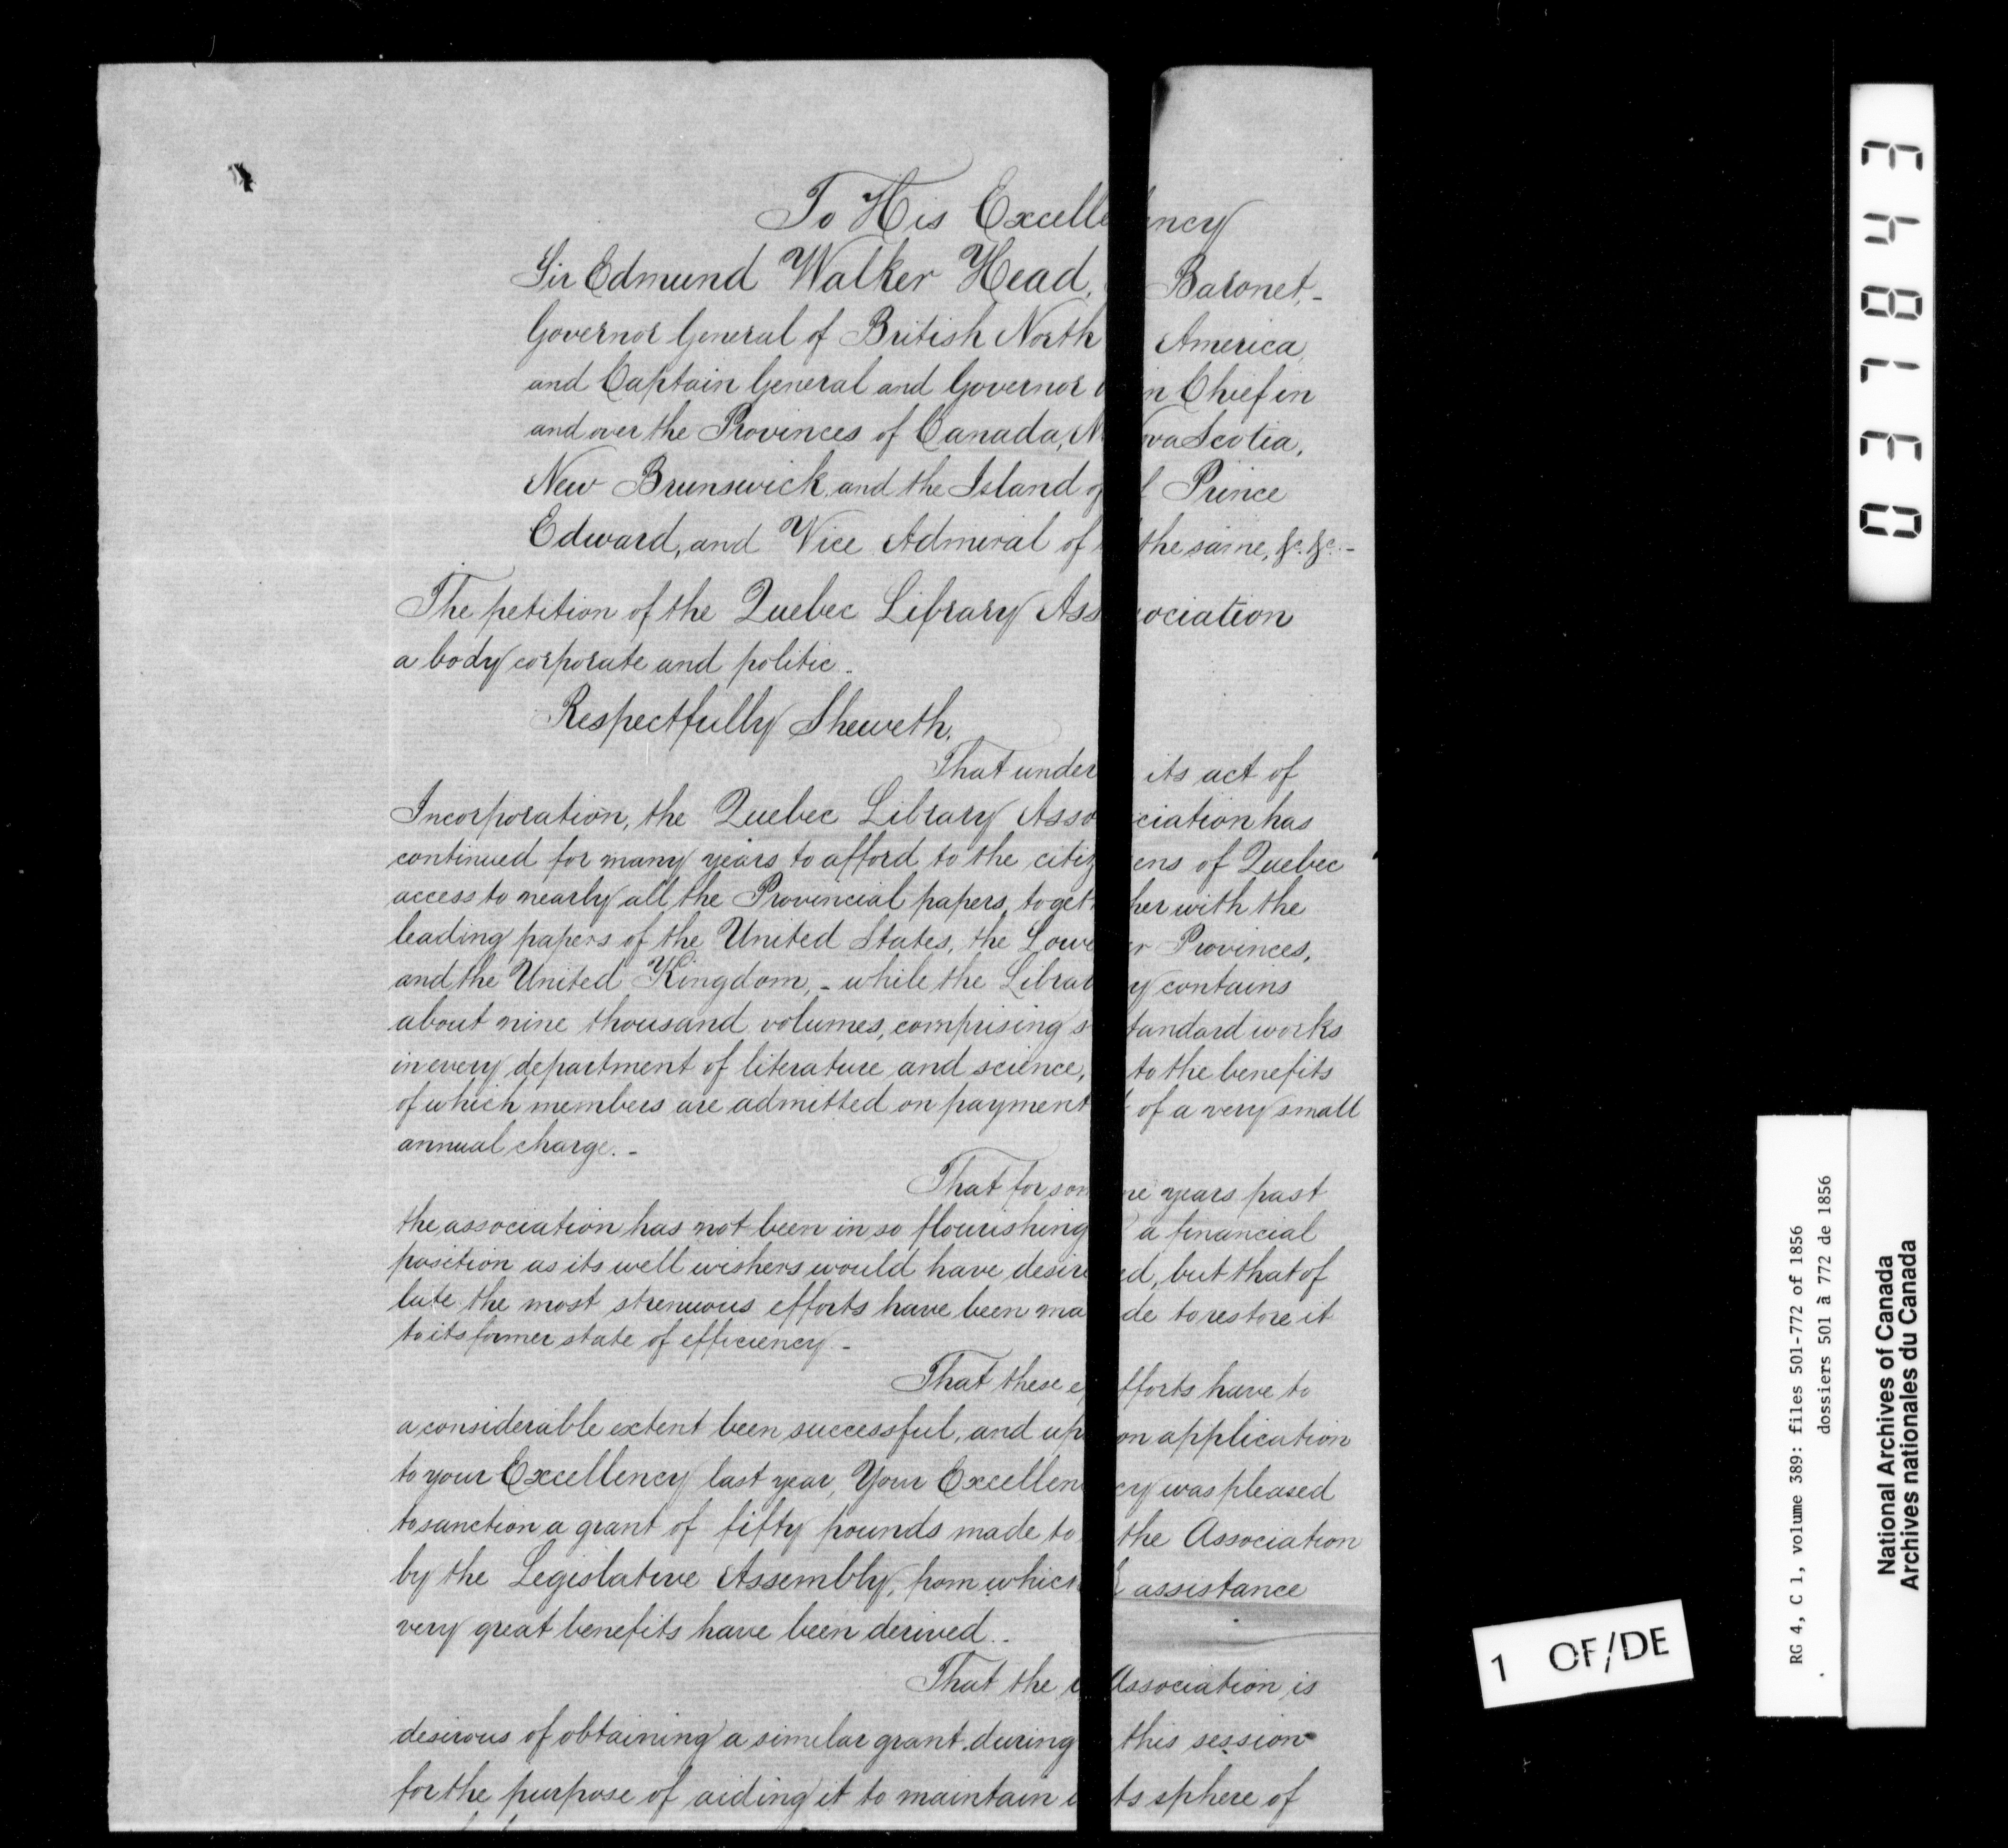 To His Excellency
Sir Edmund Walker Head, Baronet,-
Governor General of British North America,
and Captain General and Governor in Chief in
and over the Provinces of Canada, Nova Scotia,
New Brunswick, and the Island of Prince
Edward, and Vice Admiral of the same, &c. &c. -
The petition of the Quebec Library Association
a body corporate and politic -
Respectfully Sheweth,
That under its act of
Incorporation, the Quebec Library Association has
continued for many years to afford to the citizens of Quebec
access to nearly all the Provincial papers, together with the
leading papers of the United States, the Lower Provinces,
and the United Kingdom, - while the Library contains
about nine thousand volumes, comprising standard works
in every department of literature and science, to the benefits
of which members are admitted on payment of a very small
annual charge. -
That for some years past
the association has not been in so flourishing a financial
position as its well wishers would have desired, but that of
late the most strenuous efforts have been made to restore it
to its former state of efficiency -
That these efforts have to
a considerable extent been successful, and upon application
to your Excellency last year, Your Excellency was pleased
to sanction a grant of fifty pounds made to the Association
by the Legislative Assembly, from which assistance
very great benefits have been derived. -
That the Association is
desirous of obtaining a similar grant during this session
for the purpose of aiding it to maintain its sphere of
037843
RG 4, C 1, volume 389: files 501-772 of 1856
dossiers 501 à 772 de 1856
National Archives of Canada
Archives nationales du Canada
1 OF/DE